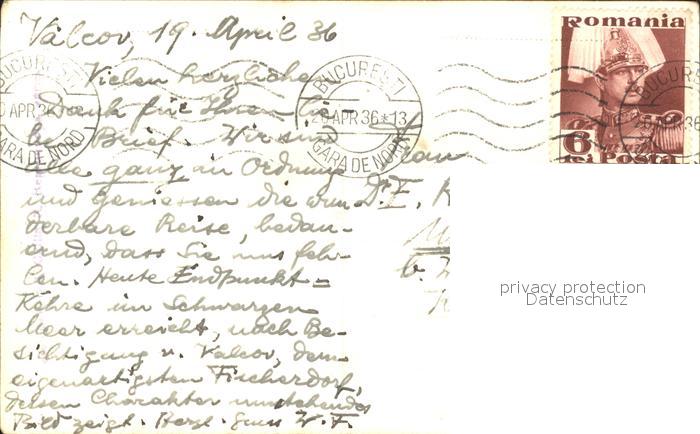 Valcov, 19. April 36
Vielen herzlichen
Dank für Ihren lie-
ben Brief. Wir sind
alle ganz in Ordnung
und geniessen die wun-
derbare Reise, bedau-
ernd, dass Sie uns feh-
len. Heute Endpunkt =
Kehre im Schwarzen
Meer erreicht, nach Be-
sichtigung v. Valcov, dem
eigenartigsten Fischerdorf,
dessen Charakter umstehendes
Bild zeigt. Herzl. Gruss W. F.
Frau
Dr. E.
b.
BUCUREȘTI
APR 36
GARA DE NORD
BUCUREȘTI
APR 36 * 13
GARA DE NORD
BUCUREȘTI
36
Romania
6
lei Posta
privacy protection
Datenschutz